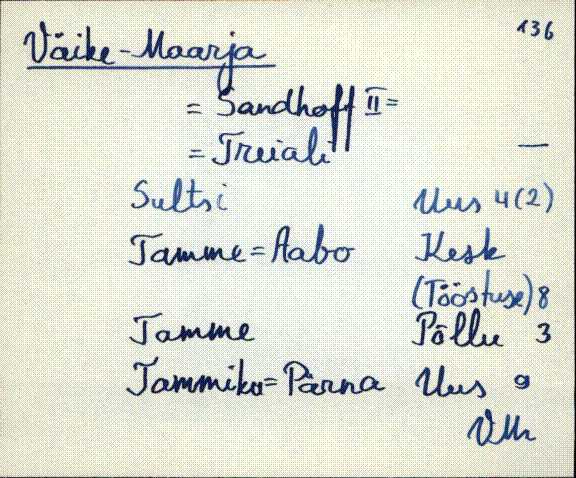 136
Väike-Maarja
= Sandhoff II =
= Treiali —
Sultsi Uus 4(2)
Tamme = Aabo Kesk
(Tööstuse) 8
Tamme Põllu 3
Tammiku = Pärna Uus 9